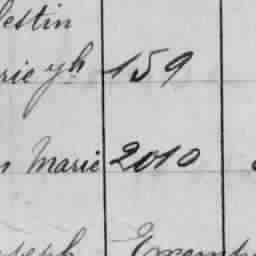 lestin
rie yh 159
Marie 2010
seph Exemp